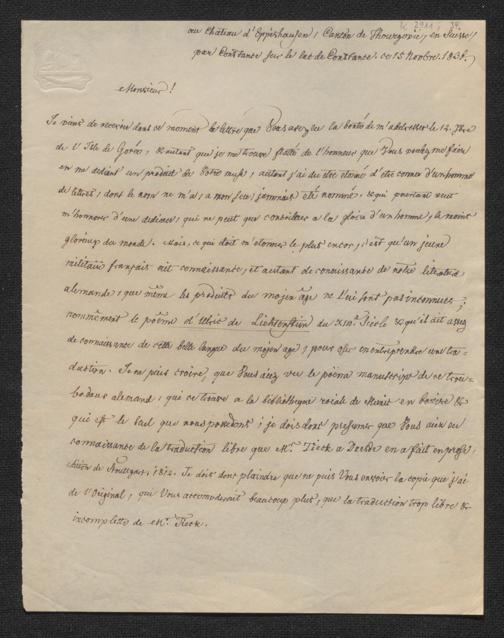 K 2911, 34.
au Château d'Eppishausen, Canton de Thourgovie, en Suisse,
par Constance sur le lac de Constance. ce 15 Novbre. 1838.
Monsieur!
Je viens de recevoir dans ce moment la lettre que Vous avez eu la bonté de m'addresser le 12. 7bre
de l'Isle de Gorée, & autant que je me trouve flatté de l'honneur que Vous voulez me faire
en me dédiant un produit de Votre muse, autant j'ai du être étonné d'être connu d'un homme
de lettres, dont le nom ne m'a, a mon scu, jammais été nommé, & qui pourtant veut
m'honorer d'une dédicace, qui ne peut que contribuer a la gloire d'un homme, le moins
glorieux du monde. Mais, ce qui doit m'étonner le plus encor, c'est qu'un jeune
militaire français ait connaissance, et autant de connaissance de notre literature
allemande, que même les produits du mojen âge ne lui sont pas inconnues,
nommément le poëme d'Ulric de Lichtenstein du XIIIe Siècle & qu'il ait assez
de connaissance de cette belle langue du mojen age, pour oser en entreprendre une tra-
duction. Je ne puis croire, que Vous aiez vu le poëme manuscript de ce trou-
badour alemand, que se trouve a la bibliothèque roiale de Munic en bavière &
qui est le seul que nous possédons; je dois donc présumer que Vous aiez eu
connaissance de la traduction libre que Mr. Tieck a Dresde en a fait en prose,
édition de Stuttgart, 1812. Je dois donc plaindre que ne puis Vous envoier la copie que j'ai
de l'Original, qui Vous accomoderait beaucoup plus, que la traduction trop libre &
incomplette de Mr. Tieck.